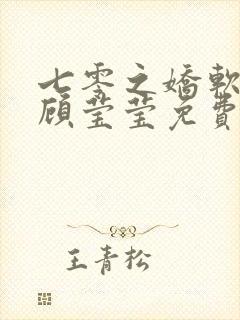 七零之嬌軟
顧瑩瑩免費
王青松